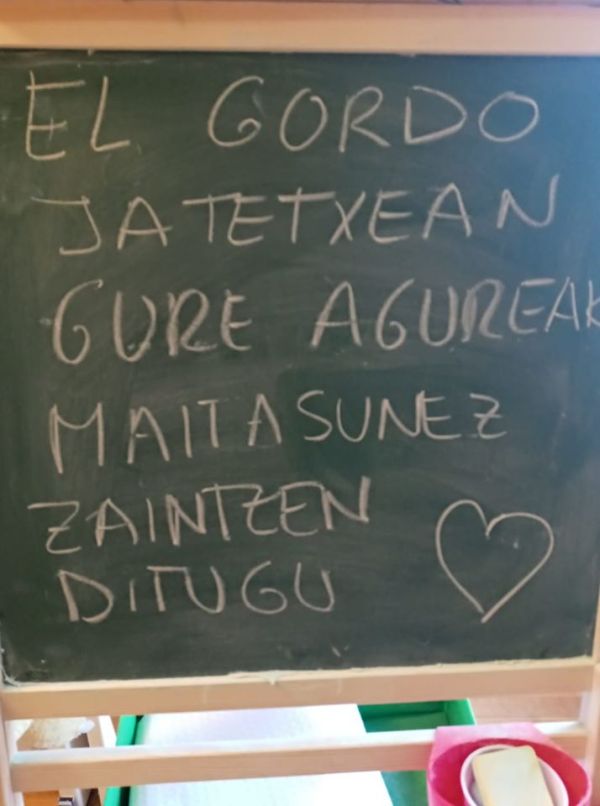 EL GORDO
JATETXEAN
GURE AGUREAK
MAITASUNEZ
ZAINTZEN
DITUGU